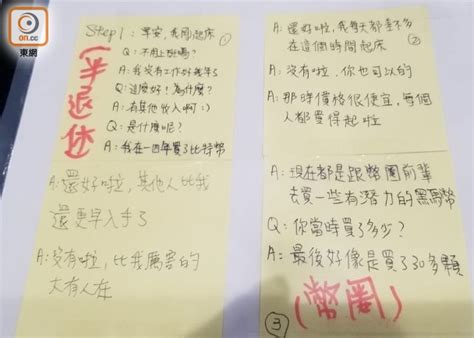 on.cc
東網
Step 1: 早安,我剛起床 ①
Q: 不用上班嗎?
A: 我沒有工作好幾年了
Q: 這麼好!為什麼?
A: 有其他收入啊:)
Q: 是什麼呢?
A: 我在一四年買了比特幣
(半退休)
A: 還好啦,我每天都差不多
在這個時間起床 ②
A: 沒有啦,你也可以的
A: 那時價格很便宜,每個
人都買得起啦
A: 還好啦,其他人比我
還更早入手了
A: 沒有啦,比我厲害的
大有人在
A: 現在都是跟幣圈前輩
去買一些有潛力的黑馬幣
Q: 你當時買了多少?
A: 最後好像是買了30多顆
(幣圈)
③